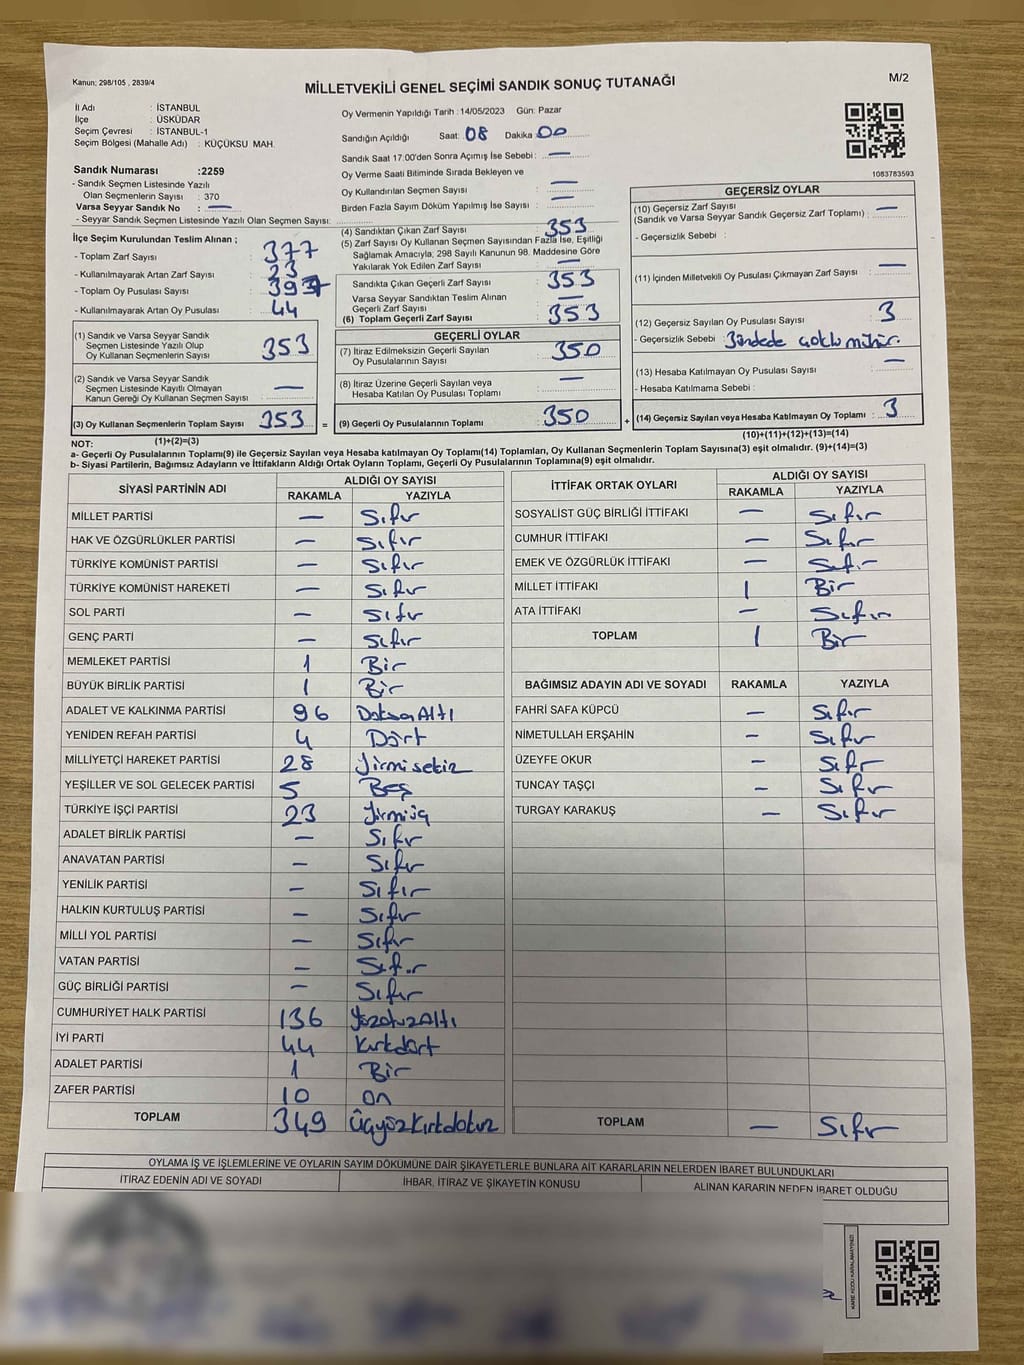 Kanun; 298/105 , 2839/4
MİLLETVEKİLİ GENEL SEÇİMİ SANDIK SONUÇ TUTANAĞI
M/2
İl Adı : İSTANBUL
İlçe : ÜSKÜDAR
Seçim Çevresi : İSTANBUL-1
Seçim Bölgesi (Mahalle Adı) : KÜÇÜKSU MAH.
Sandık Numarası :2259
- Sandık Seçmen Listesinde Yazılı
Olan Seçmenlerin Sayısı : 370
Varsa Seyyar Sandık No : —
- Seyyar Sandık Seçmen Listesinde Yazılı Olan Seçmen Sayısı:
Oy Vermenin Yapıldığı Tarih : 14/05/2023 Gün: Pazar
Sandığın Açıldığı Saat: 08 Dakika : 00
Sandık Saat 17:00'den Sonra Açımış İse Sebebi : —
Oy Verme Saati Bitiminde Sırada Bekleyen ve
Oy Kullandırılan Seçmen Sayısı : —
Birden Fazla Sayım Döküm Yapılmış İse Sayısı : —
1083783593
İlçe Seçim Kurulundan Teslim Alınan ;
- Toplam Zarf Sayısı : 377
- Kullanılmayarak Artan Zarf Sayısı : 23
- Toplam Oy Pusulası Sayısı : 397
- Kullanılmayarak Artan Oy Pusulası : 44
(1) Sandık ve Varsa Seyyar Sandık
Seçmen Listesinde Yazılı Olup
Oy Kullanan Seçmenlerin Sayısı : 353
(2) Sandık ve Varsa Seyyar Sandık
Seçmen Listesinde Kayıtlı Olmayan
Kanun Gereği Oy Kullanan Seçmen Sayısı : —
(3) Oy Kullanan Seçmenlerin Toplam Sayısı : 353 =
(4) Sandıktan Çıkan Zarf Sayısı : 353
(5) Zarf Sayısı Oy Kullanan Seçmen Sayısından Fazla İse, Eşitliği
Sağlamak Amacıyla, 298 Sayılı Kanunun 98. Maddesine Göre
Yakılarak Yok Edilen Zarf Sayısı : —
Sandıkta Çıkan Geçerli Zarf Sayısı : 353
Varsa Seyyar Sandıktan Teslim Alınan
Geçerli Zarf Sayısı : —
(6) Toplam Geçerli Zarf Sayısı : 353
GEÇERLİ OYLAR
(7) İtiraz Edilmeksizin Geçerli Sayılan
Oy Pusulalarının Sayısı : 350
(8) İtiraz Üzerine Geçerli Sayılan veya
Hesaba Katılan Oy Pusulası Toplamı : —
(9) Geçerli Oy Pusulalarının Toplamı : 350 +
GEÇERSİZ OYLAR
(10) Geçersiz Zarf Sayısı : —
(Sandık ve Varsa Seyyar Sandık Geçersiz Zarf Toplamı)
- Geçersizlik Sebebi :
(11) İçinden Milletvekili Oy Pusulası Çıkmayan Zarf Sayısı : —
(12) Geçersiz Sayılan Oy Pusulası Sayısı : 3
- Geçersizlik Sebebi : 3ündede çoklu mühür.
(13) Hesaba Katılmayan Oy Pusulası Sayısı : —
- Hesaba Katılmama Sebebi :
(14) Geçersiz Sayılan veya Hesaba Katılmayan Oy Toplamı : 3
NOT: (1)+(2)=(3)
(10)+(11)+(12)+(13)=(14)
a- Geçerli Oy Pusulalarının Toplamı(9) ile Geçersiz Sayılan veya Hesaba katılmayan Oy Toplamı(14) Toplamları, Oy Kullanan Seçmenlerin Toplam Sayısına(3) eşit olmalıdır. (9)+(14)=(3)
b- Siyasi Partilerin, Bağımsız Adayların ve İttifakların Aldığı Ortak Oyların Toplamı, Geçerli Oy Pusulalarının Toplamına(9) eşit olmalıdır.
SİYASİ PARTİNİN ADI ALDIĞI OY SAYISI
RAKAMLA YAZIYLA
MİLLET PARTİSİ — Sıfır
HAK VE ÖZGÜRLÜKLER PARTİSİ — Sıfır
TÜRKİYE KOMÜNİST PARTİSİ — Sıfır
TÜRKİYE KOMÜNİST HAREKETİ — Sıfır
SOL PARTİ — Sıfır
GENÇ PARTİ — Sıfır
MEMLEKET PARTİSİ 1 Bir
BÜYÜK BİRLİK PARTİSİ 1 Bir
ADALET VE KALKINMA PARTİSİ 96 DoksanAltı
YENİDEN REFAH PARTİSİ 4 Dört
MİLLİYETÇİ HAREKET PARTİSİ 28 Yirmisekiz
YEŞİLLER VE SOL GELECEK PARTİSİ 5 Beş
TÜRKİYE İŞÇİ PARTİSİ 23 Yirmiüç
ADALET BİRLİK PARTİSİ — Sıfır
ANAVATAN PARTİSİ — Sıfır
YENİLİK PARTİSİ — Sıfır
HALKIN KURTULUŞ PARTİSİ — Sıfır
MİLLİ YOL PARTİSİ — Sıfır
VATAN PARTİSİ — Sıfır
GÜÇ BİRLİĞİ PARTİSİ — Sıfır
CUMHURİYET HALK PARTİSİ 136 YüzotuzAltı
İYİ PARTİ 44 Kırkdört
ADALET PARTİSİ 1 Bir
ZAFER PARTİSİ 10 on
TOPLAM 349 Üçyüzkırkdokuz
İTTİFAK ORTAK OYLARI ALDIĞI OY SAYISI
RAKAMLA YAZIYLA
SOSYALİST GÜÇ BİRLİĞİ İTTİFAKI — Sıfır
CUMHUR İTTİFAKI — Sıfır
EMEK VE ÖZGÜRLÜK İTTİFAKI — Sıfır
MİLLET İTTİFAKI 1 Bir
ATA İTTİFAKI — Sıfır
TOPLAM 1 Bir
BAĞIMSIZ ADAYIN ADI VE SOYADI RAKAMLA YAZIYLA
FAHRİ SAFA KÜPCÜ — Sıfır
NİMETULLAH ERŞAHİN — Sıfır
ÜZEYFE OKUR — Sıfır
TUNCAY TAŞÇI — Sıfır
TURGAY KARAKUŞ — Sıfır
TOPLAM — Sıfır
OYLAMA İŞ VE İŞLEMLERİNE VE OYLARIN SAYIM DÖKÜMÜNE DAİR ŞİKAYETLERLE BUNLARA AİT KARARLARIN NELERDEN İBARET BULUNDUKLARI
İTİRAZ EDENİN ADI VE SOYADI İHBAR, İTİRAZ VE ŞİKAYETİN KONUSU ALINAN KARARIN NEDEN İBARET OLDUĞU
KARE KODU KARALAMAYINIZ!